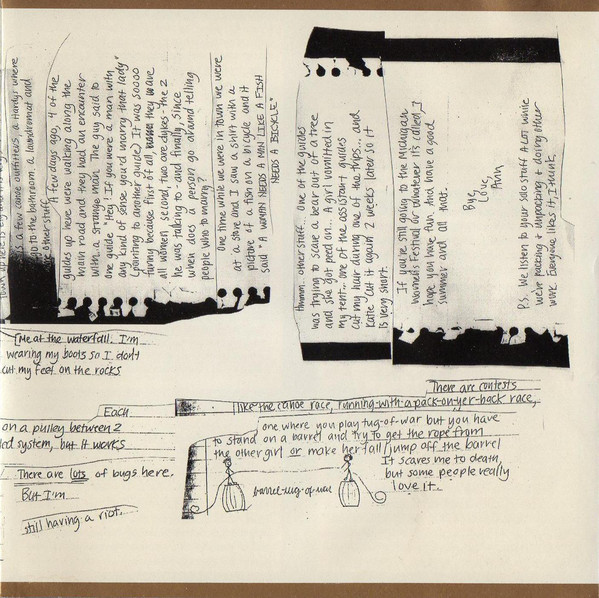 a few canoe outfitters, a Hardy's where
go to the bathroom, a laundromat and
other stuff.
A few days ago, 4 of the
guides up here were walking along the
main road and they had an encounter
with a strange man. The guy said to
one guide "Hey! If you were a man with
any kind of sense, you'd marry that lady"
(pointing to another guide) It was SOOOO
funny because first of all, they were
all women, second, two are dykes - the 2
he was talking to - and finally, since
when does a person go around telling
people who to marry?
One time while we were in town we were
at a store and I saw a shirt with a
picture of a fish on a bicycle and it
said "A WOMAN NEEDS A MAN LIKE A FISH
NEEDS A BICYCLE"
hmmm... other stuff... one of the guides
was trying to scare a bear out of a tree
and she got peed on... A girl vomitted in
my tent... one of the assistant guides
cut my hair during one of the trips... and
Katie cut it again 2 weeks later so it
is very short.
If you're still going to the Michigan
Women's Festival (or whatever it's called) I
hope you have fun. And have a good
summer and all that.
Bye,
Love,
Ann
P.S. We listen to your solo stuff A LOT while
we're packing + unpacking + doing other
work. Everyone likes it, I think.
Me at the waterfall. I'm
wearing my boots so I don't
cut my feet on the rocks
Each
on a pulley between 2
system, but it works
There are lots of bugs here.
But I'm
still having a riot.
There are contests
like the canoe race, running-with-a-pack-on-yer-back race,
one where you play tug-of-war but you have
to stand on a barrel and try to get the rope from
the other girl or make her fall/jump off the barrel
It scares me to death,
but some people really
love it.
barrel-tug-of-war